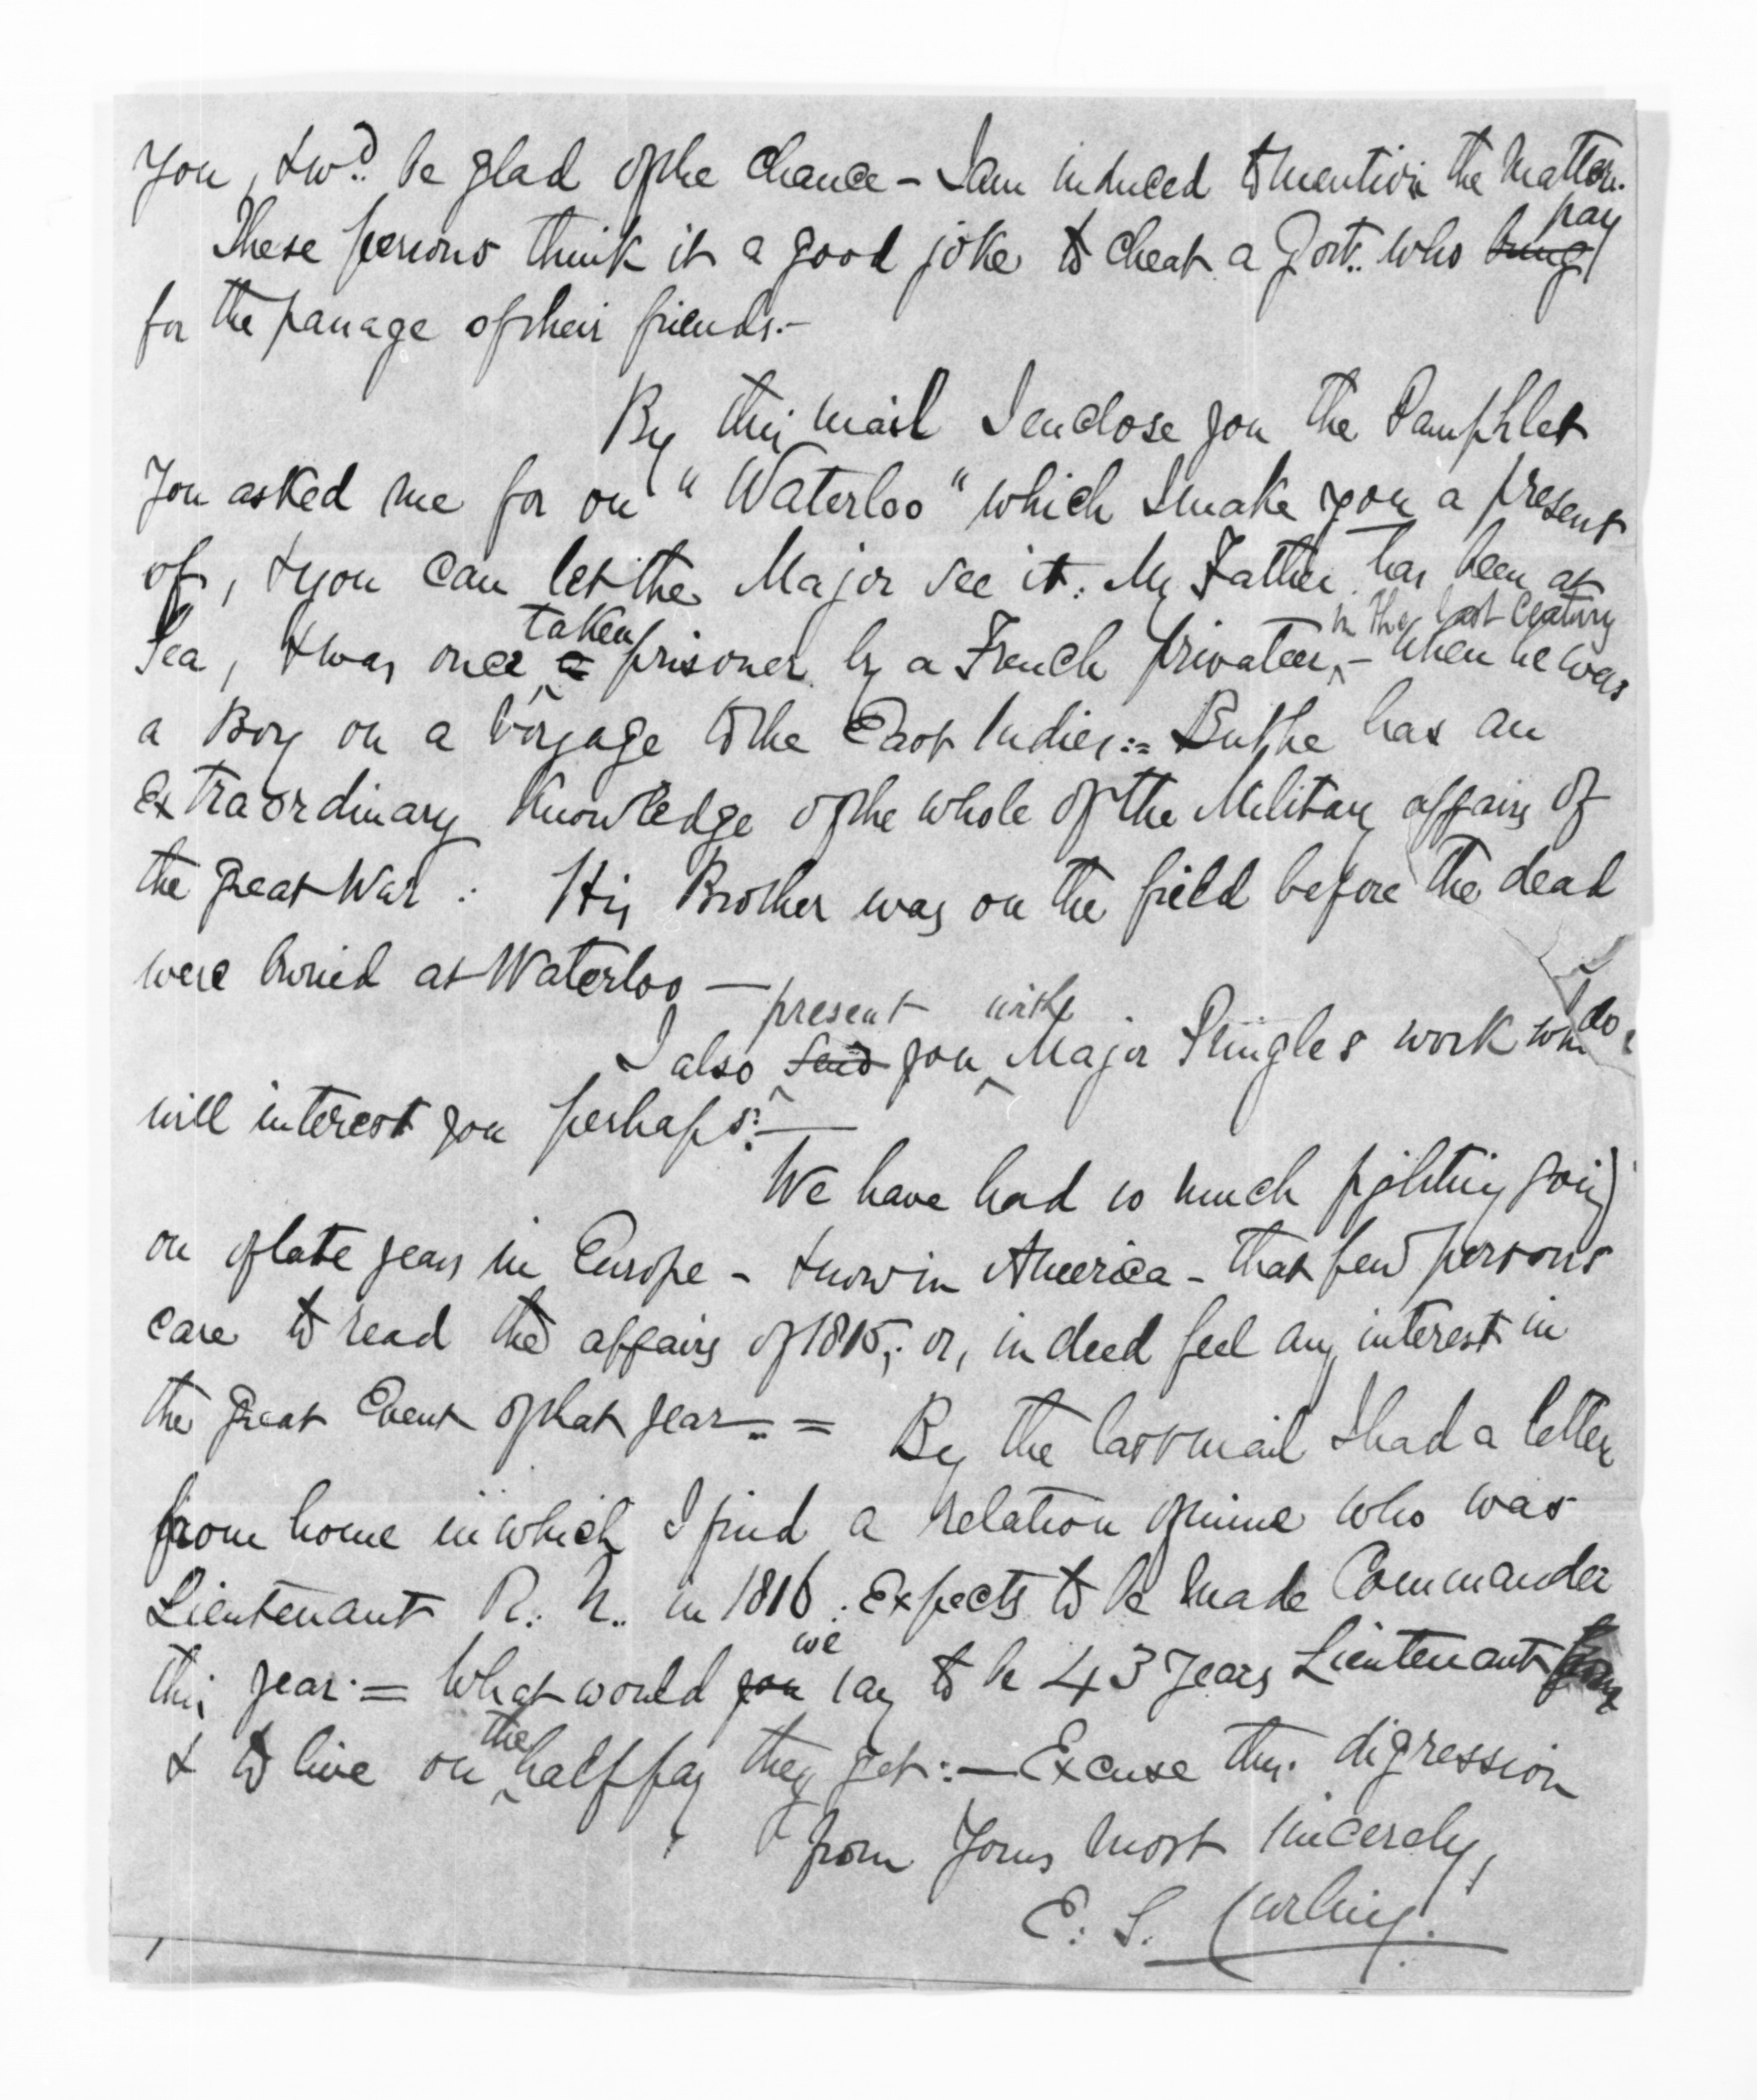 You, & wd. be glad of the chance – I am induced to mention the matter.
These persons think it a good joke to cheat a Govt. who pay
for the passage of their friends.–
By this mail I enclose you the Pamphlet
You asked me for on "Waterloo" which I make you a present
of, & you can let the Major see it. My Father has been at
Sea, & was once taken prisoner by a French privateer, in the last Century – when he was
a Boy on a voyage to the East Indies:= But he has an
extraordinary knowledge of the whole of the Military affairs of
the great War : His Brother was on the field before the dead
were buried at Waterloo —
I also present you with Major Pringle's work
will interest you perhaps:—
We have had so much fighting going
on of late years in Europe – & now in America – that few persons
care to read the affairs of 1815; or, indeed feel any interest in
the great Event of that year. = By the last mail I had a letter
from home in which I find a relation of mine who was
Lieutenant R. N. in 1816. expects to be made Commander
this year. = What would we say to be 43 years Lieutenant
& to live on the half pay they get:— Excuse this digression
from Yours most sincerely,
E. S. Curling.